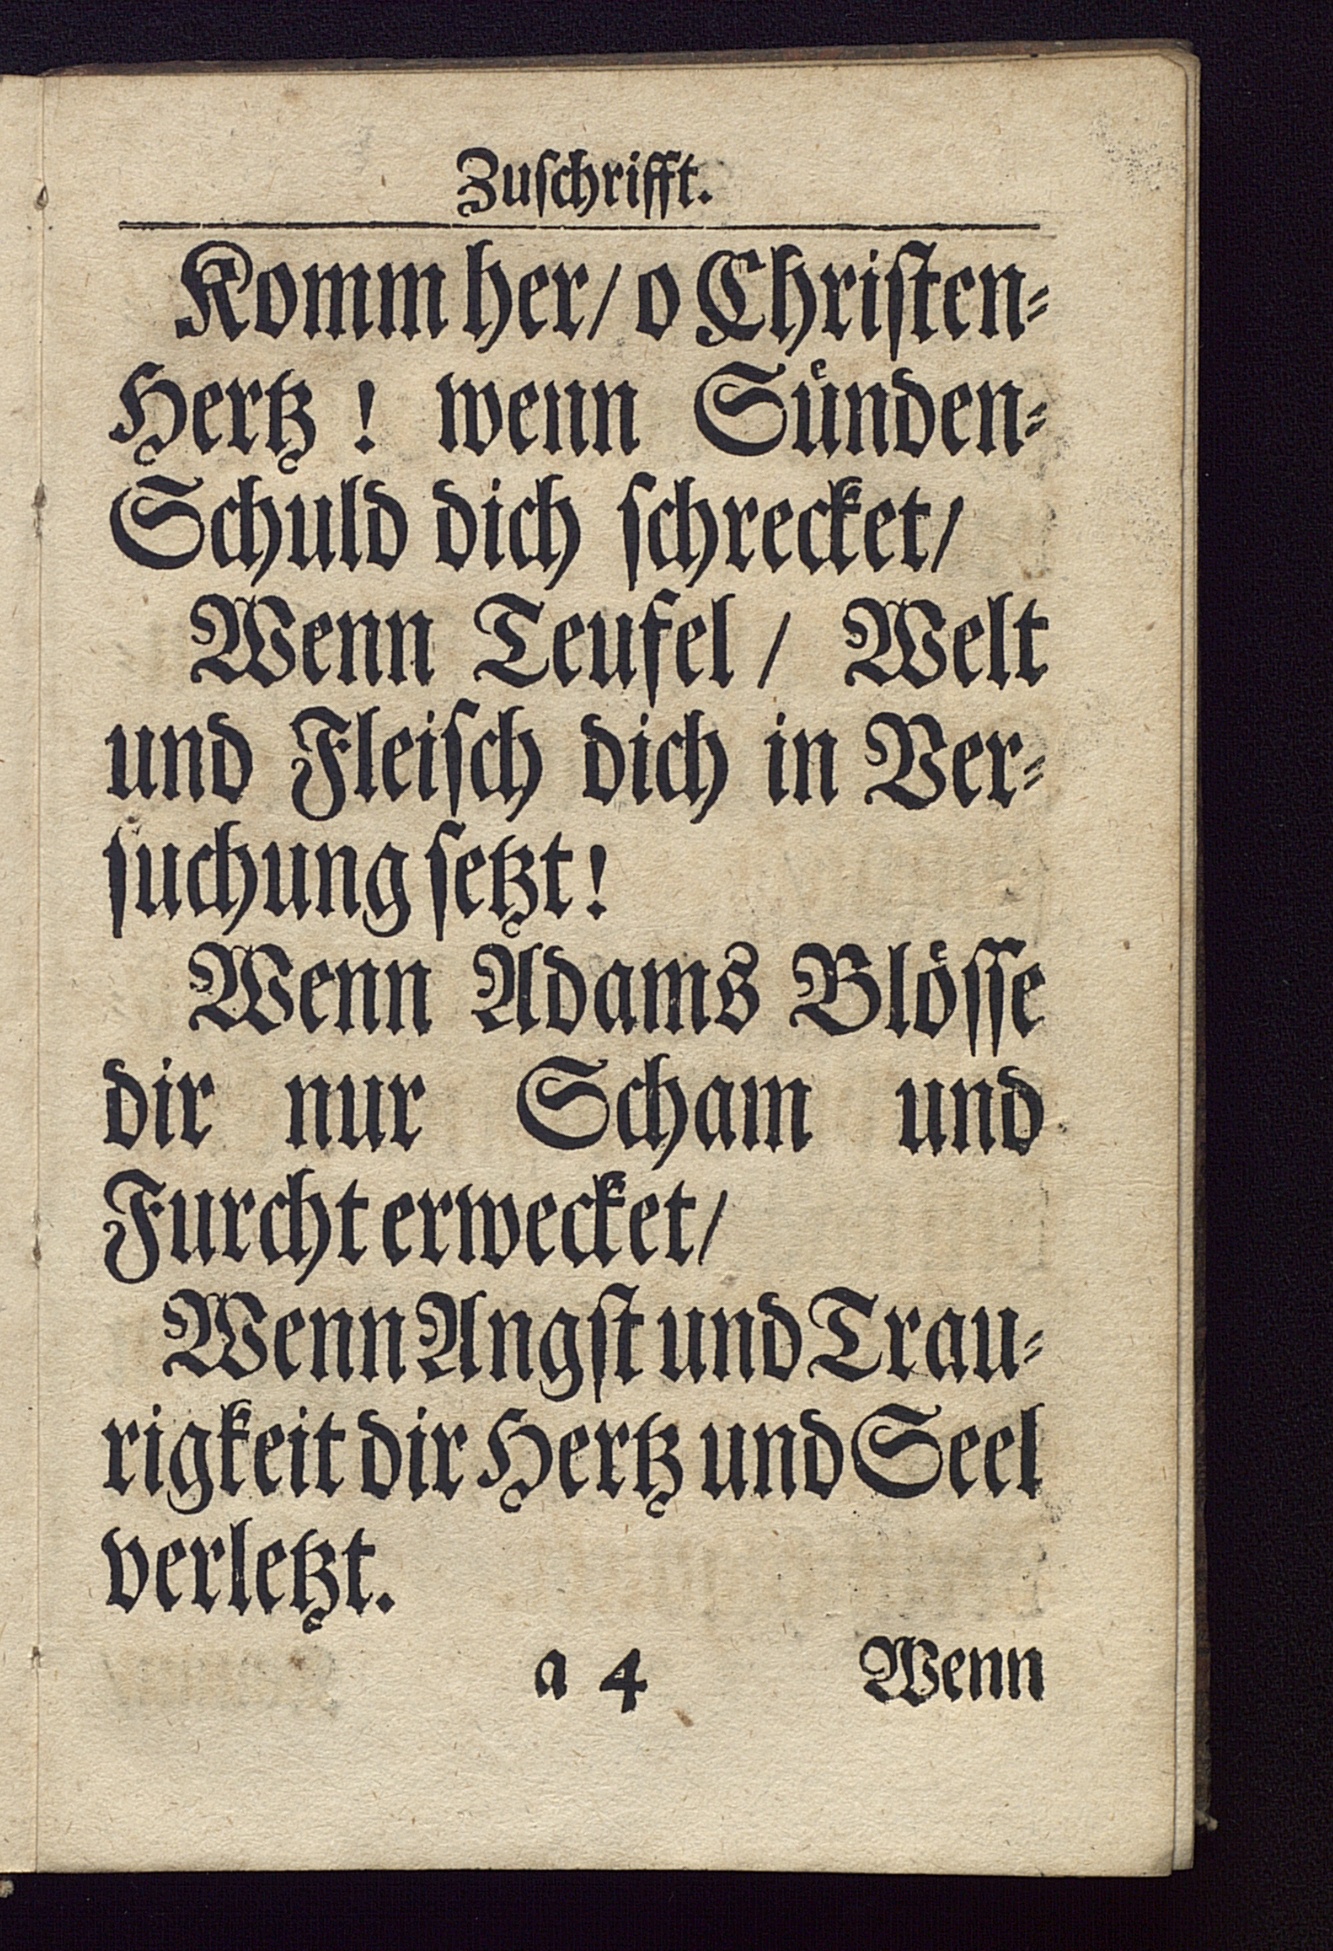 Zuſchrifft.
Komm her/ o Chriſten⸗
Hertz ! wenn Suͤnden⸗
Schuld dich ſchrecket/
Wenn Teufel / Welt
und Fleiſch dich in Ver⸗
ſuchung ſetzt!
Wenn Adams Blöſſe
dir nur Scham und
Furcht erwecket/
Wenn Angſt und Trau⸗
rigkeit dir Hertz und Seel
verletzt.
a 4 Wenn